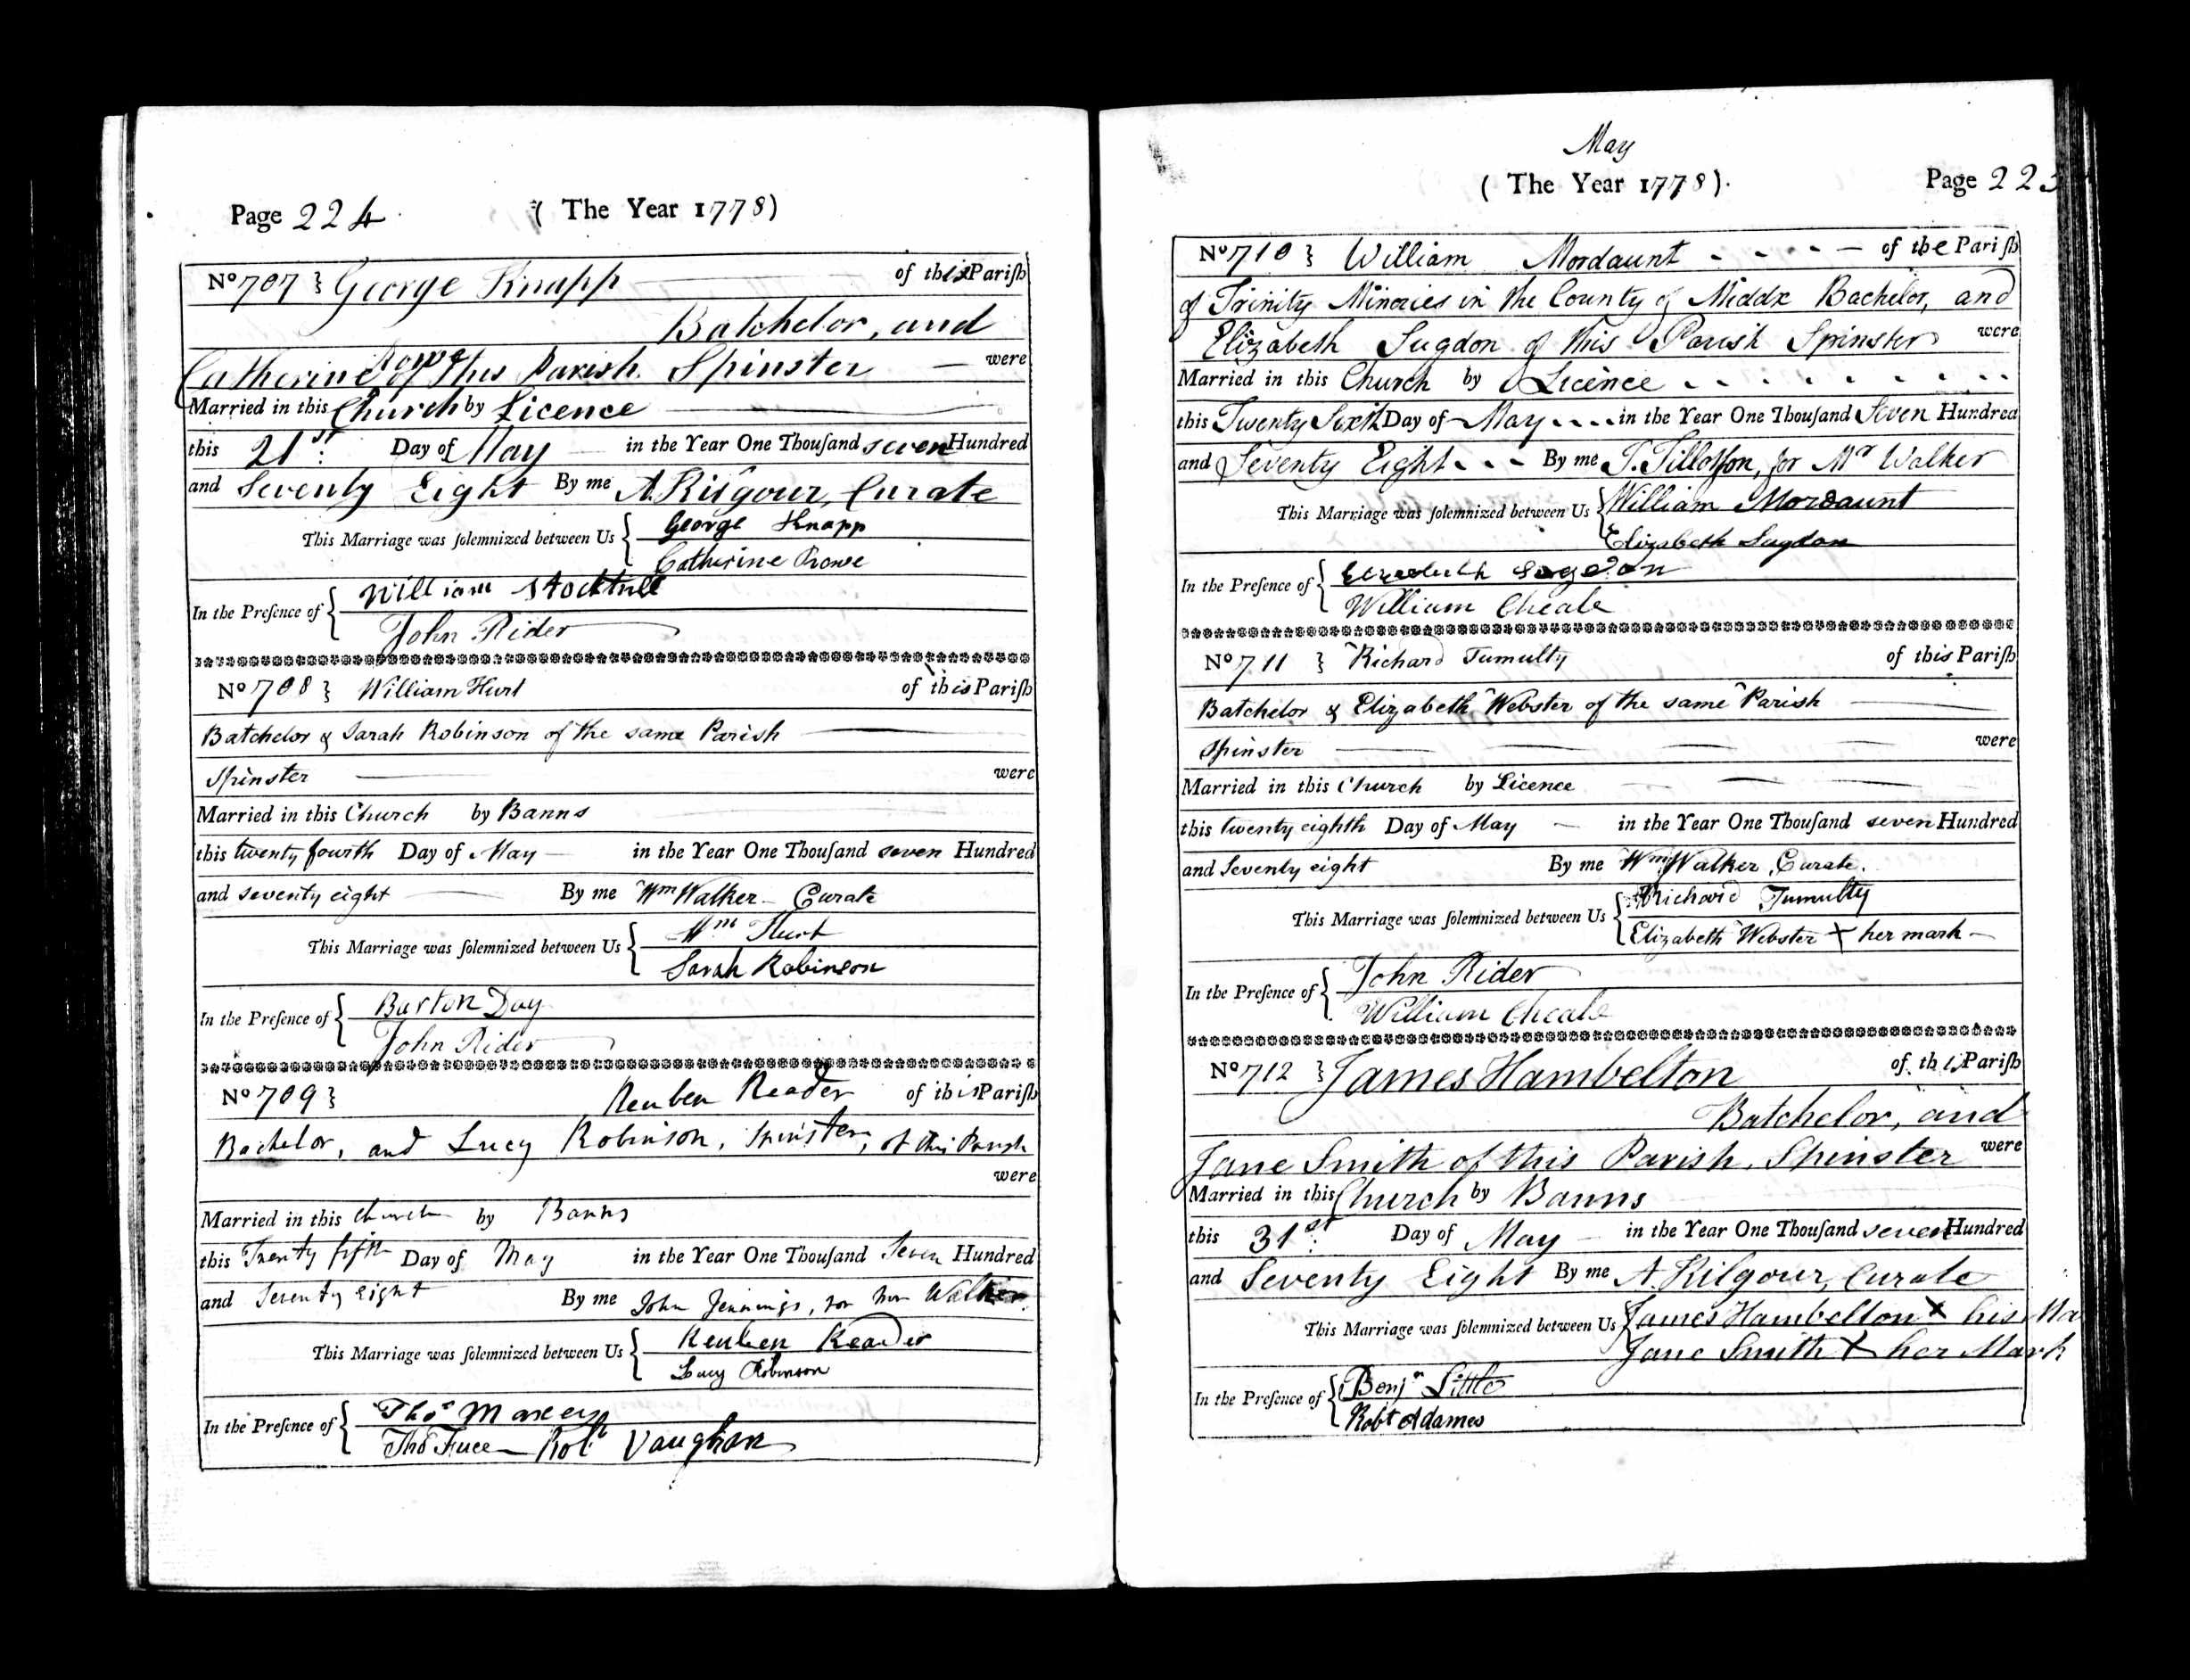 Page 224 ( The Year 1778)
No 707 } George Knapp of this Pariſh
Batchelor, and
Rowe
Catherine of this Parish Spinster were
Married in this Church by Licence
this 21st Day of May in the Year One Thouſand seven Hundred
and Seventy Eight By me A. Kilgour, Curate
This Marriage was ſolemnized between Us { George Knapp
Catherine Rowe
In the Preſence of { William
John Rider
No 708 } William Hurt of this Pariſh
Batchelor & Sarah Robinson of the same Parish
Spinster were
Married in this Church by Banns
this twenty fourth Day of May in the Year One Thouſand seven Hundred
and seventy eight By me Wm Walker Curate
This Marriage was ſolemnized between Us { Wm Hurt
Sarah Robinson
In the Preſence of { Burton Day
John Rider
No 709 } Reuben Reader of this Pariſh
Bachelor, and Lucy Robinson, Spinster, of this Parish
were
Married in this Church by Banns
this Twenty fifth Day of May in the Year One Thouſand Seven Hundred
and Seventy eight By me John Jennings, for Walker
This Marriage was ſolemnized between Us { Reuben Reader
Lucy Robinson
In the Preſence of { Thos
Thos Robt Vaughan
May
( The Year 1778). Page 225
No 710 } William Mordaunt of the Pariſh
of Trinity Minories in the County of Middx Bachelor, and
Elizabeth Sugdon of this Parish Spinster were
Married in this Church by Licence
this Twenty Sixth Day of May in the Year One Thouſand Seven Hundred
and Seventy Eight By me J. Tillotson, for Mr Walker
This Marriage was ſolemnized between Us { William Mordaunt
Elizabeth Sugdon
In the Preſence of { Elizabeth
William Cheale
No 711 } Richard Tumulty of this Pariſh
Batchelor & Elizabeth Webster of the same Parish
Spinster were
Married in this Church by Licence
this twenty eighth Day of May in the Year One Thouſand seven Hundred
and Seventy eight By me Wm Walker, Curate.
This Marriage was ſolemnized between Us { Richard Tumulty
Elizabeth Webster X her mark
In the Preſence of { John Rider
William Cheale
No 712 } James Hambelton of this Pariſh
Batchelor, and
Jane Smith of this Parish, Spinster were
Married in this Church by Banns
this 31st Day of May in the Year One Thouſand seven Hundred
and Seventy Eight By me A. Kilgour, Curate
This Marriage was ſolemnized between Us { James Hambelton X his Ma
Jane Smith X her Mark
In the Preſence of { Benjn Little
Robt Adames